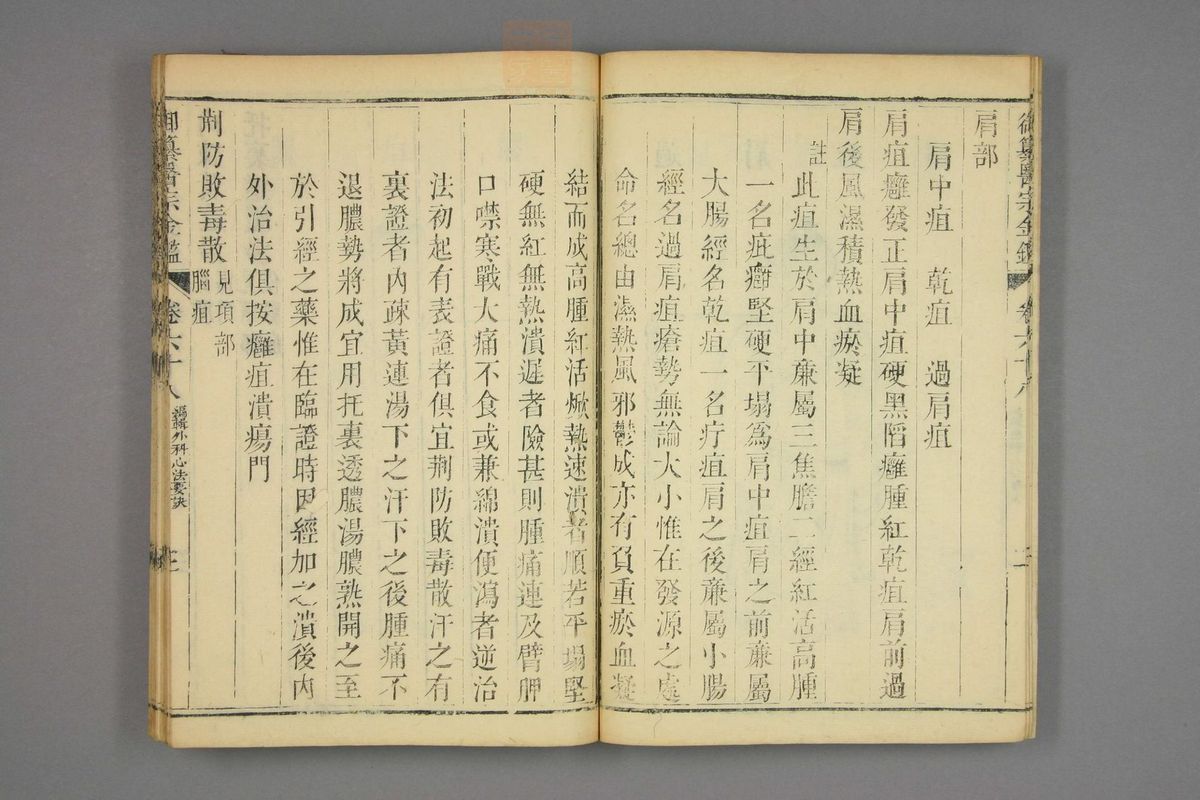 御纂醫宗金鑑 卷六十八
肩部
肩中疽 乾疽 過肩疽
肩疽癰發正肩中疽硬黑陷癰腫紅乾疽肩前過
肩後風濕積熱血瘀凝
註此疽生於肩中廉屬三焦膽二經紅活高腫
一名疵癰堅硬平塌為肩中疽肩之前廉屬
大腸經名乾疽一名疔疽肩之後廉屬小腸
經名過肩疽瘡勢無論大小惟在發源之處
命名總由濕熱風邪鬱成亦有負重瘀血凝
結而成高腫紅活焮熱速潰者順若平塌堅
硬無紅無熱潰遲者險甚則腫痛連及臂胛
口噤寒戰大痛不食或兼綿潰便瀉者逆治
法初起有表證者俱宜荊防敗毒散汗之有
裏證者內疎黃連湯下之汗下之後腫痛不
退膿勢將成宜用托裏透膿湯膿熟開之至
於引經之藥惟在臨證時因經加之潰後內
外治法俱按癰疽潰瘍門
荊防敗毒散見項部
腦疽
御纂醫宗金鑑 卷六十八 編輯外科心法要訣